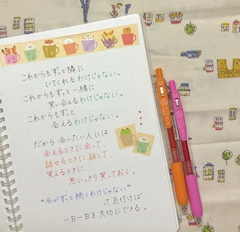 これからもずっと傍に
いてくれるわけじゃない。
これからもずっと一緒に
笑い合えるわけじゃない。
これからもずっと
会えるわけじゃない。
だから 会いたい人には
会えるときに会って、
話せるときに話して、
笑えるときに
思いっきり笑っておく。
"今がずっと続くわけじゃない"
って気付けば
一日一日を大切にできる。